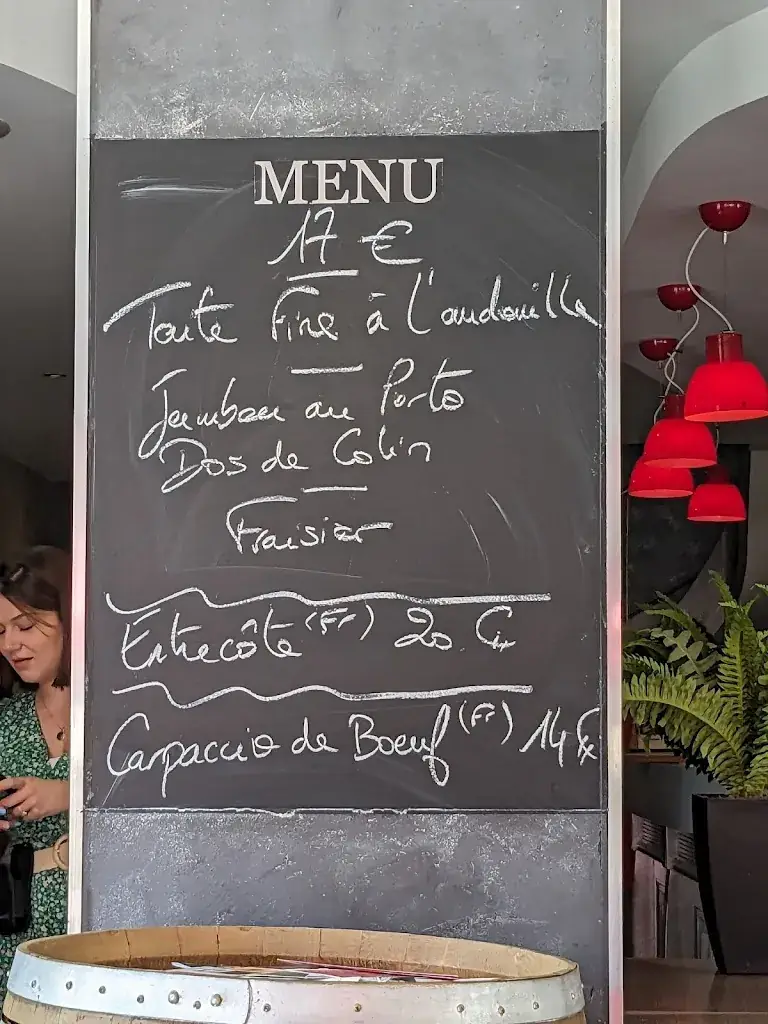 MENU
17 €
Tarte fine à l'andouille
Jambon au Porto
Dos de Colin
Fraisier
Entrecôte (FF) 20 €
Carpaccio de Boeuf (FF) 14 €